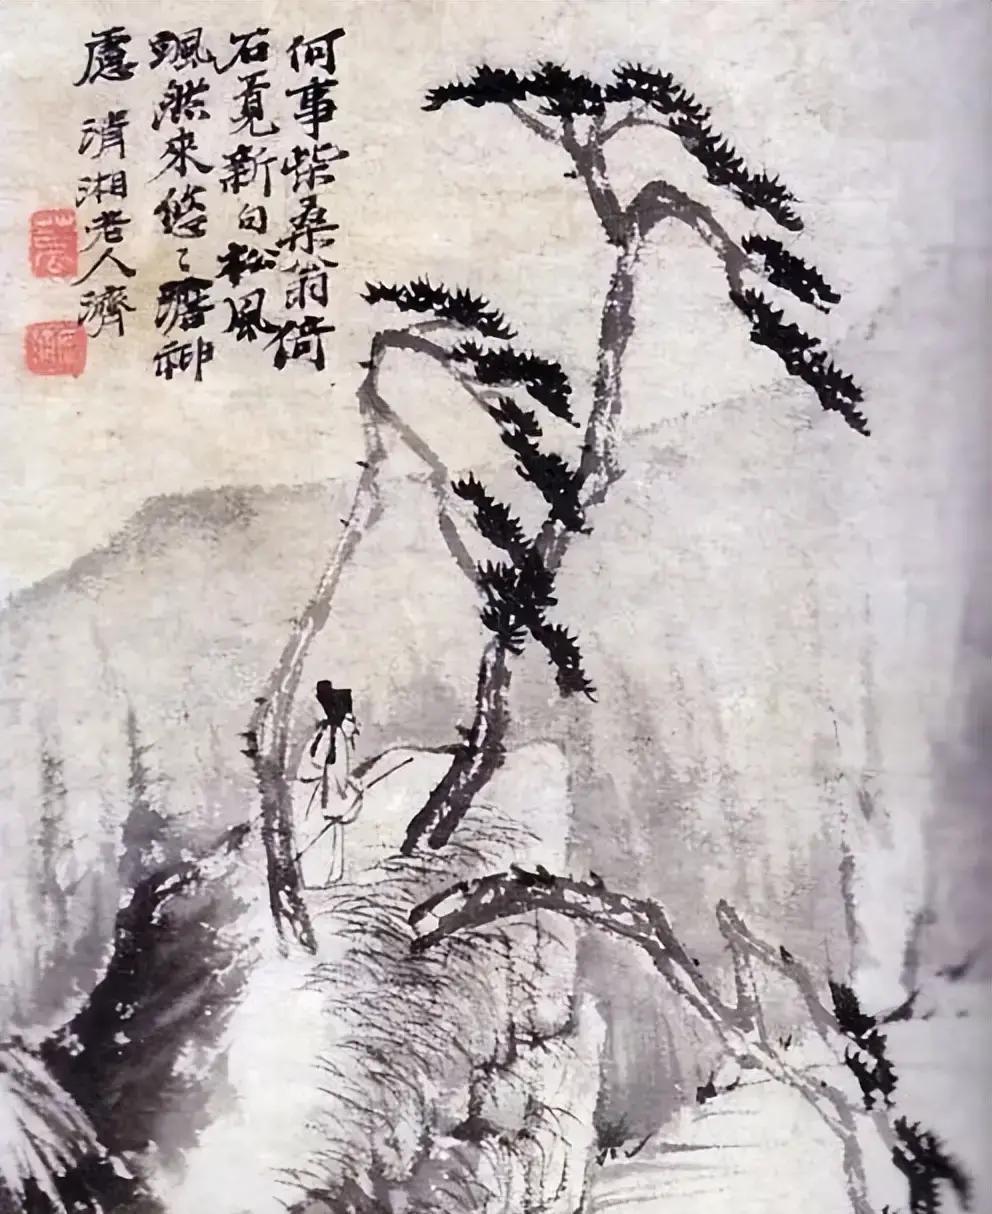 何事柴桑翁倚
石覓新句松風
颯然來悠〻澹神
慮 清湘老人濟